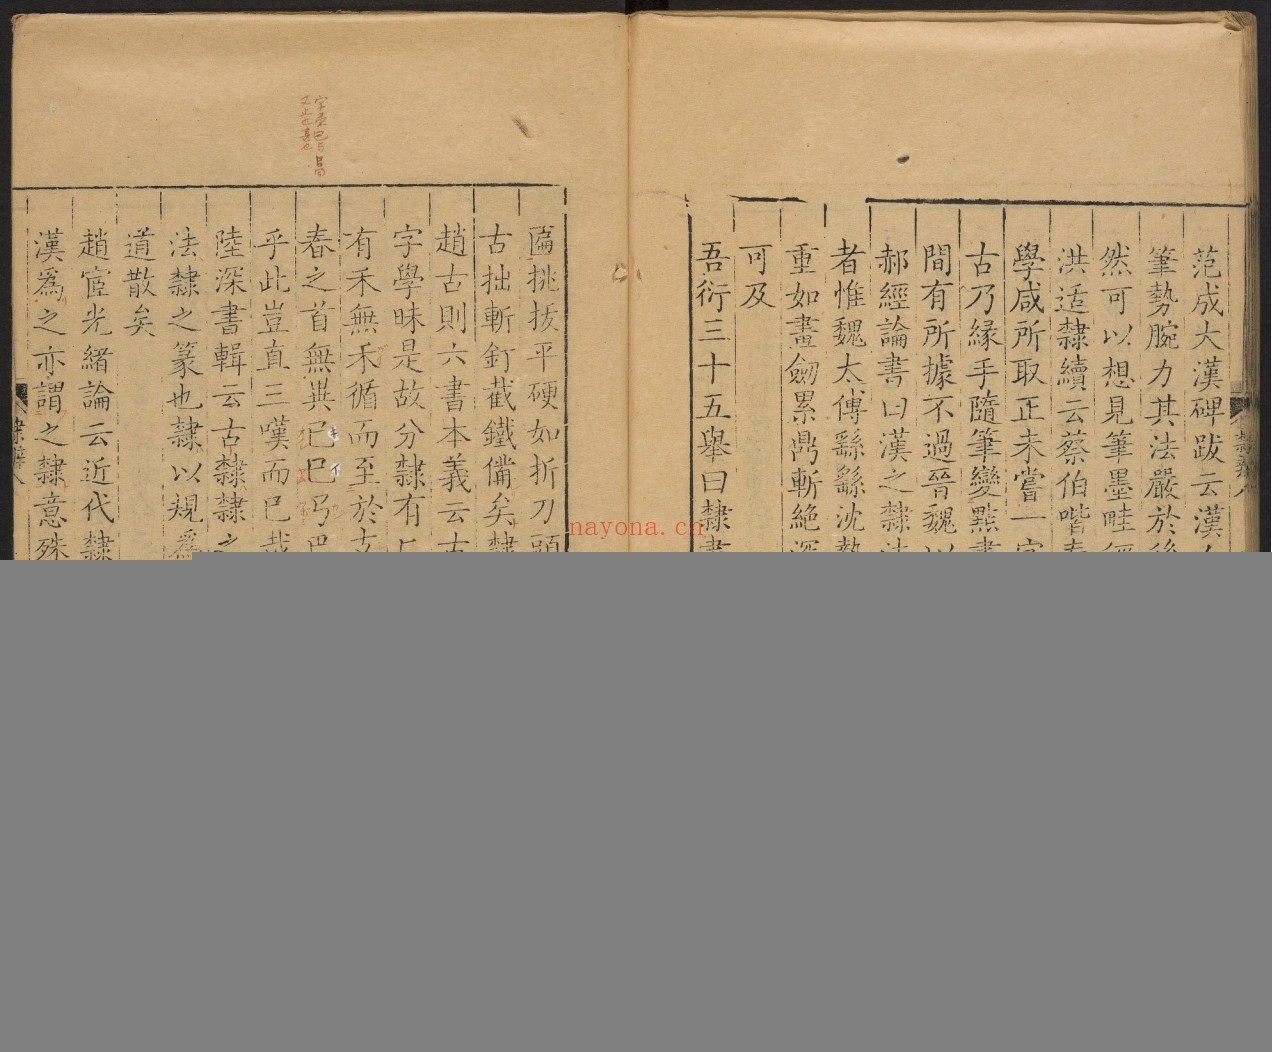 范成大漢碑跋云漢
筆勢腕力其法嚴於
然可以想見筆墨畦
洪适隸續云蔡伯喈
學咸所取正未嘗一字
古乃緣手隨筆變點畫
間有所據不過晉魏
郝經論書曰漢之隸法
者惟魏太傅繇繇沈
重如畫劒累鼎斬絶深
可及
吾衍三十五舉曰隸書
匾挑拔平硬如折刀頭
古拙斬釘截鐵僃矣隸
趙古則六書本義云古
字學昧是故分隸有
有禾無禾循而至於
春之首無異已巳
乎此豈直三嘆而已哉
陸深書輯云古隸隸之
法隸之篆也隸以規爲
道散矣
趙宧光緒論云近代隸
漢爲之亦謂之隸意殊
nayona.cn